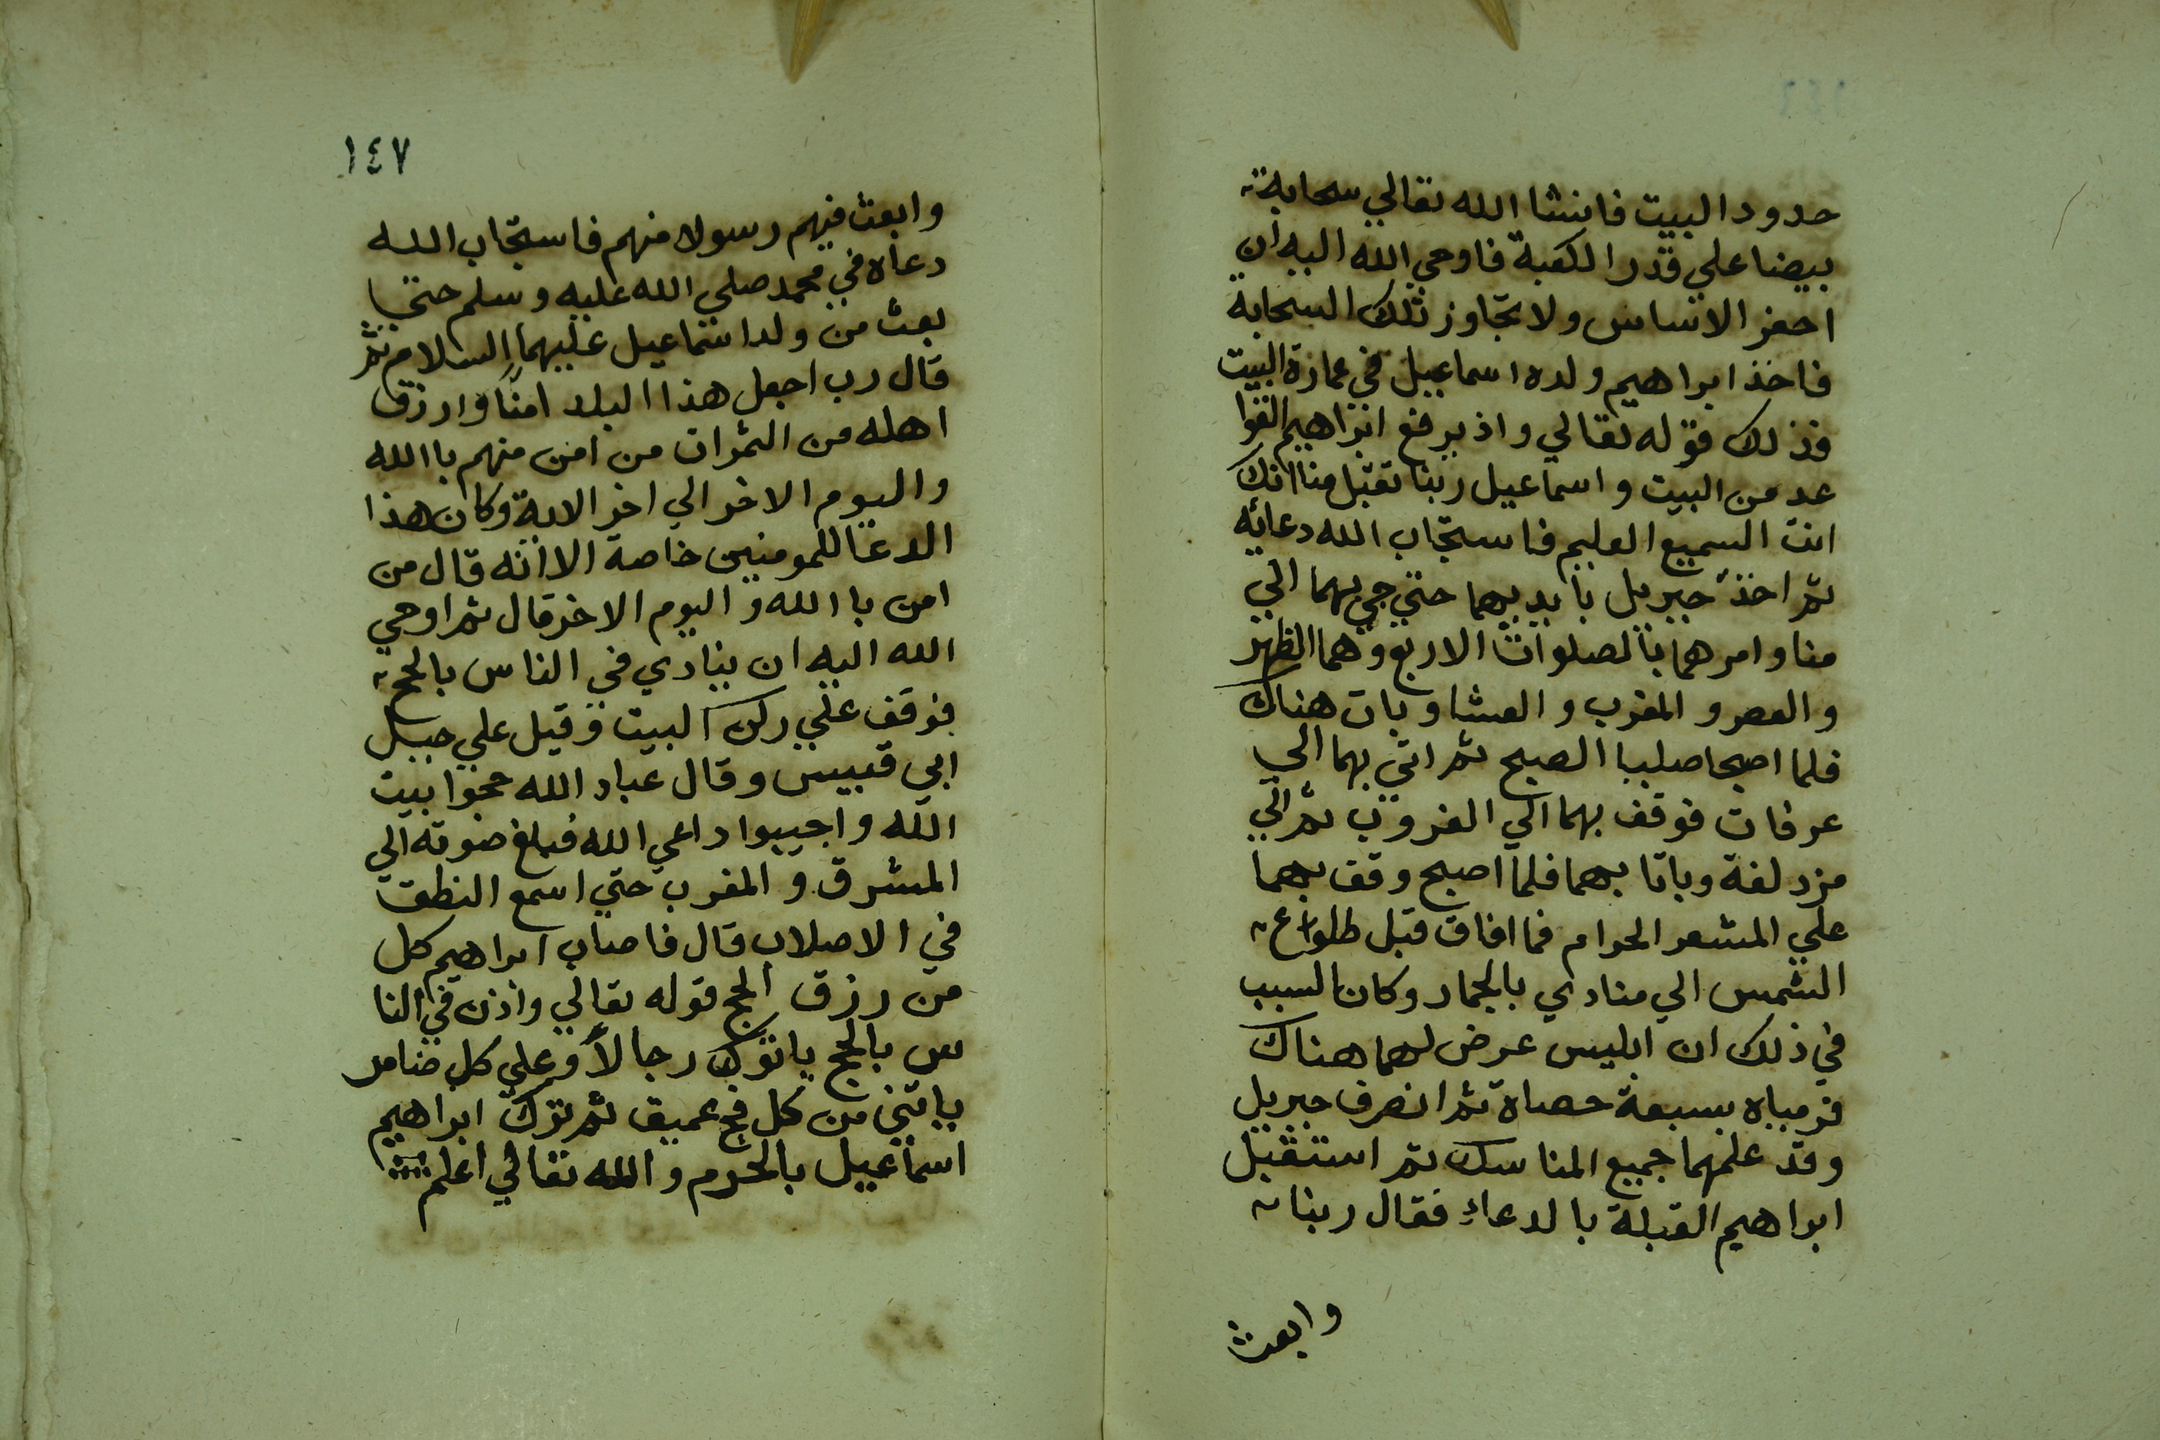 حدود البيت فانشا الله تعالي سحابة
بيضا علي قدر الكعبة فاوحي الله اليه ان
احفر الاساس ولا تجاوز تلك السحابة
فاخذ ابراهيم ولده اسماعيل في عمارة البيت
فذلك قوله تعالي واذ يرفع ابراهيم القوا
عد من البيت واسماعيل ربنا تقبل منا انك
انت السميع العليم فاستجاب الله دعائه
ثم اخذ جبريل بايديهما حتي جي بهما الي
منا وامرهما بالصلوات الاربع وهما الظهر
والعصر والمغرب والعشا وبات هناك
فلما اصبحا صليا الصبح ثم اتي بهما الي
عرفات فوقف بهما الي الغروب ثم الي
مزدلفة وباتا بهما فلما اصبح وقف بهما
علي المشعر الحرام فما افاق قبل طلوع
الشمس الي منادي بالجمار وكان السبب
في ذلك ان ابليس عرض لهما هناك
فرمياه بسبعة حصاة ثم انصرف جبريل
وقد علمهما جميع المناسك ثم استقبل
ابراهيم القبلة بالدعاء فقال ربنا
وابعث
١٤٧
وابعث فيهم رسولا منهم فاستجاب الله
دعاه في محمد صلي الله عليه وسلم حتي
بعث من ولد اسماعيل عليهما السلام ثم
قال رب اجعل هذا البلد امنا وارزق
اهله من الثمرات من امن منهم باالله
واليوم الاخر الي اخر الاية وكان هذا
الدعا للمومنين خاصة الا انه قال من
امن باالله واليوم الاخر قال ثم اوحي
الله اليه ان ينادي في الناس بالحج
فوقف علي ركن البيت وقيل علي جبل
ابي قبيس وقال عباد الله حجوا بيت
الله واجيبوا داعي الله فبلغ صوته الي
المشرق والمغرب حتي اسمع النطق
في الاصلاب قال فاصاب ابراهيم كل
من رزق الحج قوله تعالي واذن في النا
س بالحج ياتوك رجالاً وعلي كل ضامر
ياتين من كل فج عميق ثم ترك ابراهيم
اسماعيل بالحرم والله تعالي اعلم